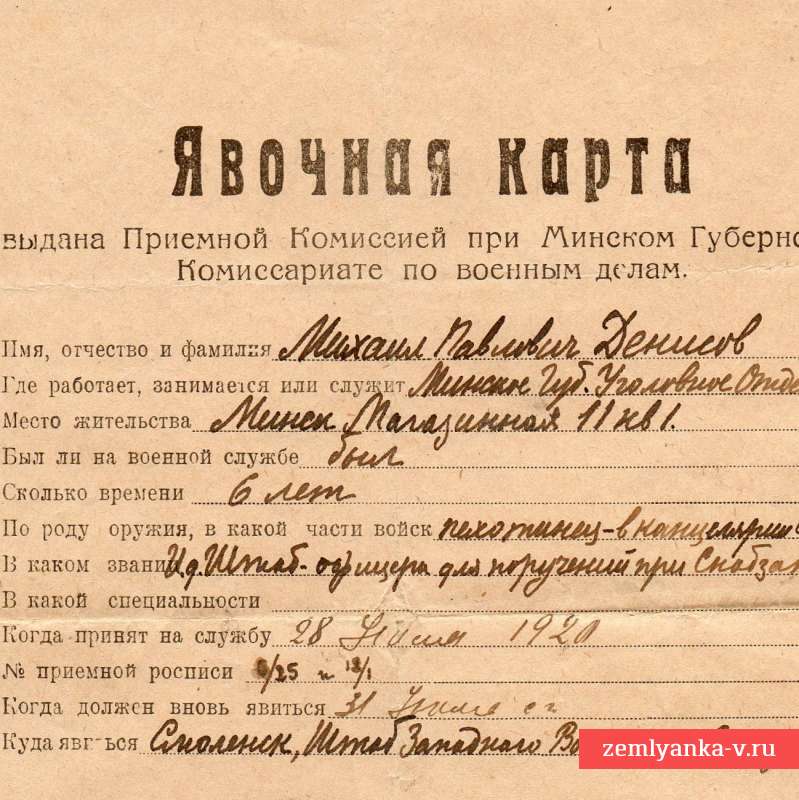 Явочная карта
выдана Приемной Комиссией при Минском Губернс
Комиссариате по военным делам.
Имя, отчество и фамилия Михаил Павлович Денисов
Где работает, занимается или служит Минское Губ. Уголовное Отде
Место жительства Минск Магазинная 11 кв 1.
Был ли на военной службе был
Сколько времени 6 лет
По роду оружия, в какой части войск пехотинец-в канцелярии
В каком звании И.д. Штаб-офицера для поручений при Снабзап
В какой специальности
Когда принят на службу 28 Июля 1920
№ приемной росписи /25 и 18/1
Когда должен вновь явиться 31 Июля с г
Куда явиться Смоленск, Штаб Западного
zemlyanka-v.ru